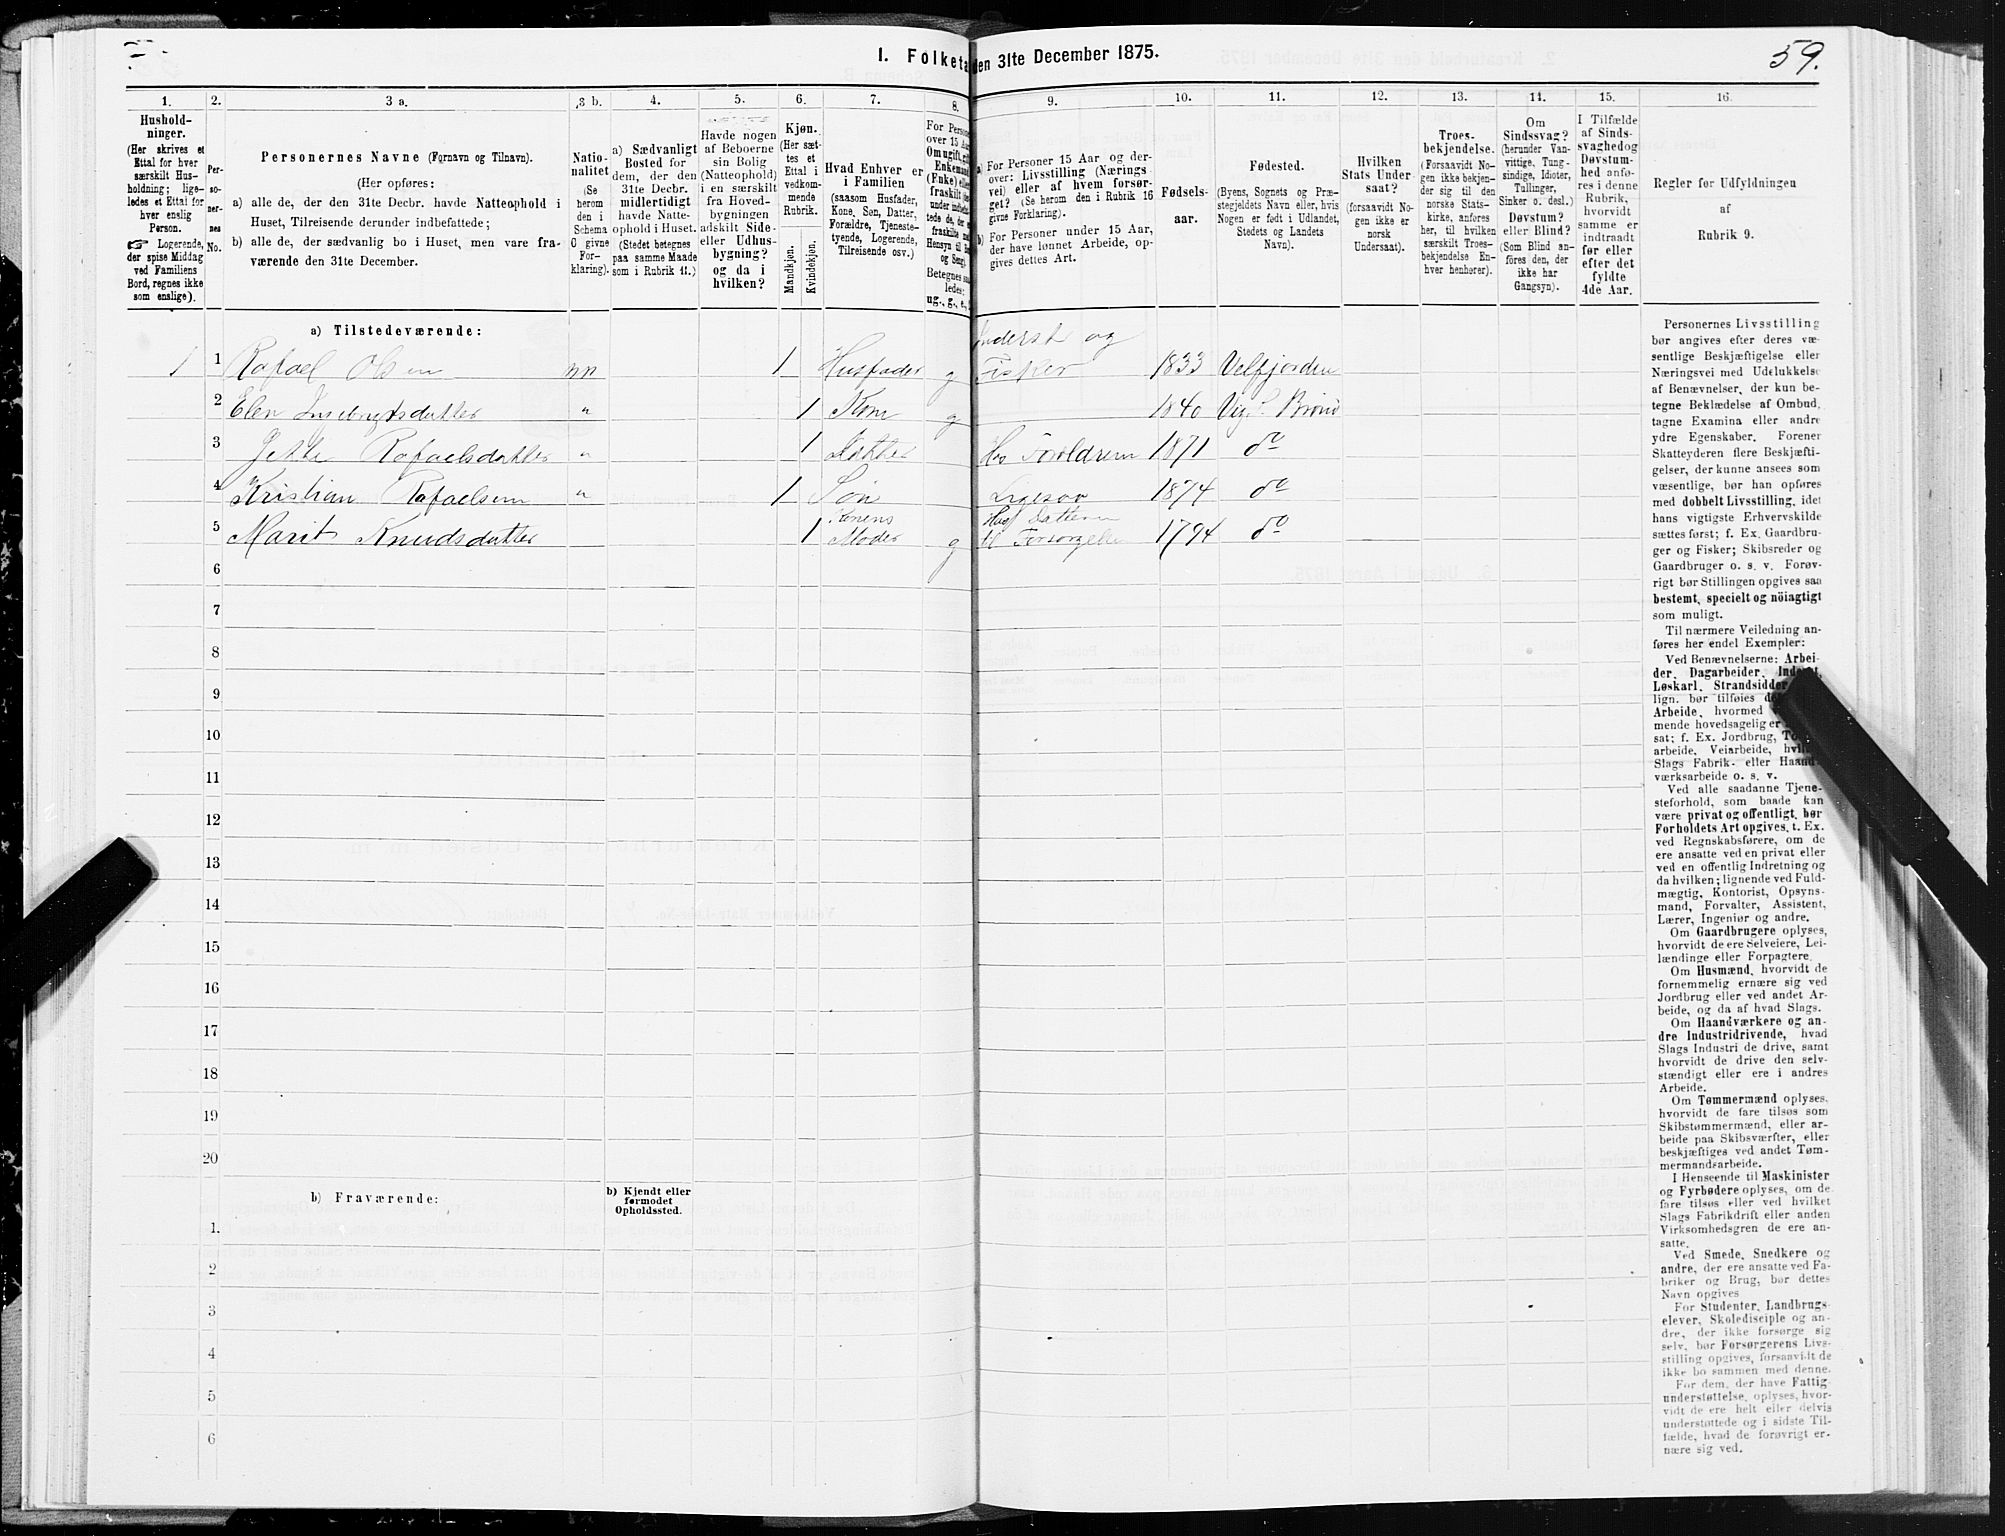 1. Folketæ
den 31te December 1875.
59.
1.
Hushold-
ninger.
(Her skrives et
Ettal for hver
særskilt Hus-
holdning; lige-
ledes et Ettal for
hver enslig
Person.
Logerende,
der spise Middag
ved Familiens
Bord, regnes ikke
som enslige).
2.
Per-
so-
ner-
nes
No.
3 a.
Personernes Navne (Fornavn og Tilnavn).
(Her opføres:
a) alle de, der den 31te Decbr. havde Natteophold i
Huset, Tilreisende derunder indbefattede;
b) alle de, der sædvanlig bo i Huset, men vare fra-
værende den 31te December.
3 b.
Natio-
nalitet
(Se
herom
den i
Schema
C givne
For-
klaring).
4.
a) Sædvanligt
Bosted for
dem, der den
31te Decbr.
midlertidigt
havde Natte-
ophold i Huset.
(Stedet betegnes
paa samme Maade
som i Rubrik 11.)
5.
Havde nogen
af Beboerne
sin Bolig
(Natteophold)
i en særskilt
fra Hoved-
bygningen
adskilt Side-
eller Udhus-
bygning?
og da i
hvilken?
6.
Kjøn.
(Her sæt-
tes et
Ettal i
vedkom-
mende
Rubrik.
Mandkjøn.
Kvindekjøn.
7.
Hvad Enhver er
i Familien
(saasom Husfader,
Kone, Søn, Datter,
Forældre, Tjeneste-
tyende, Logerende,
Tilreisende osv.)
8.
For Persone
over 15 Aa
Om ugift, gif
Enkemand
(Enke) elle
fraskilt
Betegnes
ledes:
ug., g., e.,
9.
a) For Personer 15 Aar og der-
over: Livsstilling (Nærings
vei) eller af hvem forsør-
get? (Se herom den i Rubrik 16
givne Forklaring).
b) For Personer under 15 Aar,
der have lønnet Arbeide, op-
gives dettes Art.
10.
Fødsels-
aar.
11.
Fødested.
(Byens, Sognets og Præ-
stegjeldets Navn eller, hvis
Nogen er født i Udlandet,
Stedets og Landets
Navn).
12.
Hvilken
Stats Under
saat?
(forsaavidt No-
gen ikke er
norsk
Undersaat).
13.
Troes-
bekjendelse.
(Forsaavidt No-
gen ikke bekjen-
der sig til den
norske Stats-
kirke, anføres
her, til hvilken
særskilt Troes-
bekjendelse En-
hver henhører).
14.
Om
Sindssvag?
(herunder Van-
vittige, Tung-
sindige, Idioter,
Tullinger,
Sinker o. desl.)
Døvstum?
eller Blind?
(Som Blind an-
føres den, der
ikke har
Gangsyn).
15.
I Tilfælde
af Sinds-
svaghed og
Døvstum-
hed anfø-
res i denne
Rubrik,
hvorvidt
samme er
indtraadt
før eller
efter det
fyldte
4de Aar.
16.
Regler for Udfyldningen
af
Rubrik 9.
a) Tilstedeværende:
1 1 Rafael Olsen nn 1 Husfader g Inderst og Fisker 1833 Velfjorden
2 Elen Ingebrigtsdatter " 1 Kone g 1840 Brønø
3 Jette Rafaelsdatter " 1 Datter Hos Foroldrem 1871 do
4 Kristian Rafaelsen " 1 Søn Ligesaa 1874 do
5 Marit Knudsdatter 1 Konens Moder g Datteren Forsørgelse 1794 do
6
7
8
9
10
11
12
13
14
15
16
17
18
19
20
b) Fraværende:
b) Kjendt eller
formodet
Opholdssted.
1.
2
3
4
5
6
Personernes Livsstilling
bør angives efter deres væ-
sentlige Beskjæftigelse eller
Næringsvei med Udelukkelse
af Benævnelser, der kun be-
tegne Beklædelse af Ombud,
tagne Examina eller andre
ydre Egenskaber. Forener
Skatteyderen flere Beskjæfti-
gelser, der kunne ansees som
væsentlige, bør han opføres
med dobbelt Livsstilling, idet
hans vigtigste Erhvervskilde
sættes først; f. Ex. Gaardbru-
ger og Fisker; Skibsreder og
Gaardbruger o. s. v. Forøv-
rigt bør Stillingen opgives saa
bestemt, specielt og nöiagtigt
som muligt.
Til nærmere Veiledning an-
føres her endel Exempler:
Ved Benævnelserne: Arbei-
der, Dagarbeider, Inderst,
Løskarl, Strandsidder
lign. bør tilføies
Arbeide, hvormed
mende hovedsagelig er
sat; f. Ex. Jordbrug,
arbeide, Veiarbeide,
Slags Fabrik- eller Haand-
værksarbeide o. s. v.
Ved alle saadanne Tjene-
steforhold, som baade kan
være privat og offentligt, bør
Forholdets Art opgives, t. Ex.
ved Regnskabsførere, om de
ere ansatte ved en privat eller
ved en offentlig Indretning og
da hvilken; lignende ved Fuld-
mægtig, Kontorist, Opsyns-
mand, Forvalter, Assistent,
Lærer, Ingeniør og andre.
Om Gaardbrugere oplyses,
hvorvidt de ere Selveiere, Lei-
lændinge eller Forpagtere.
Om Husmænd, hvorvidt de
fornemmelig ernære sig ved
Jordbrug eller ved andet Ar-
beide, og da af hvad Slags.
Om Haandværkere og an-
dre Industridrivende, hvad
Slags Industri de drive, samt
hvorvidt de drive den selv-
stændigt eller ere i andres
Arbeide.
Om Tømmermænd oplyses,
hvorvidt de fare tilsøs som
Skibstømmermænd, eller ar-
beide paa Skibsværfter, eller
beskjæftiges ved andet Tøm-
mermandsarbeide.
I Henseende til Maskinister
og Fyrbødere oplyses, om de
fare tilsøs eller ved hvilket
Slags Fabrikdrift eller anden
Virksomhedsgren de ere an-
satte.
Ved Smede, Snedkere og
andre, der ere ansatte ved Fa-
briker og Brug, bør dettes
Navn opgives
For Studenter, Landbrugs-
elever, Skoledisciple og an-
dre, der ikke forsørge sig
selv, bør Forsørgerens Livs-
stilling opgives, forsaavidt de
ikke bo sammen med denne.
For dem, der have Fattig-
understøttelse, oplyses, hvor-
vidt de ere helt eller delvis
understøttede og i sidste Til-
fælde, hvad de forøvrigt er-
nære sig ved.